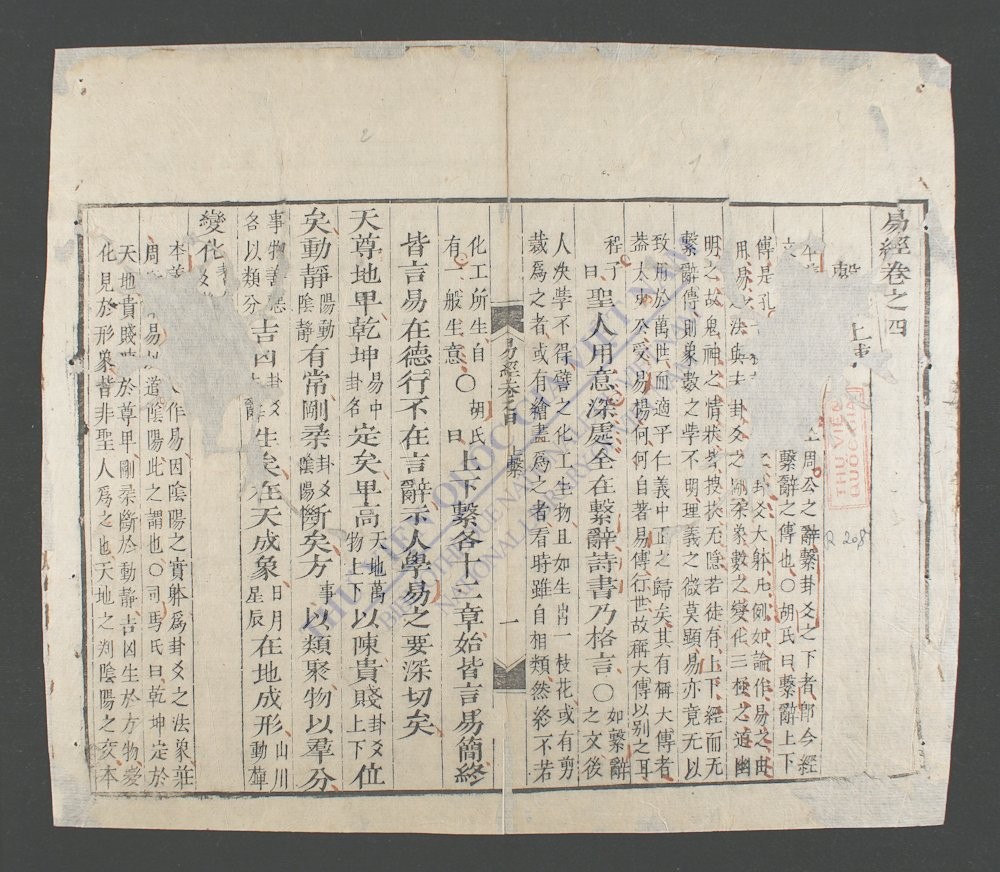 易經卷之四
繫 上
周公之辭繫卦爻之下者即今經
繫辭之傳也○胡氏曰繫辭上下
傳是孔 卦爻大躰凡例如論作易之由
用易之法與夫卦爻之剛柔象數之變化三極之道幽
明之故鬼神之情狀皆搜抉无隠若徒有上下經而无
繫辭傳則象數之學不明理義之微莫顯易亦竟无以
致用於萬世而適平仁義中正之歸矣其有稱大傳者
葢太史公受易楊何何自著易傳行世故稱大傳以别之耳
程子曰聖人用意深處全在繫辭詩書乃格言○如繫辭之文後
人决學不得譬之化工生物且如生出一枝花或有剪
裁爲之者或有繪畫爲之者看時雖自相類然終不若
化工所生自有一般生意○胡氏曰上下繫各十二章始皆言易簡終
皆言易在德行不在言辭示人學易之要深切矣
天尊地卑乾坤易中卦名定矣卑高天地萬物上下以陳貴賤卦爻上下位
矣動靜陽動陰靜有常剛柔卦爻陰陽斷矣方事以類聚物以羣分
事物善惡各以類分吉凶卦爻 生矣在天成象日月星辰在地成形山川動植
變化
本義 作易因陰陽之實躰爲卦爻之法象莊
周 易以道陰陽此之謂也○司馬氏曰乾坤定於
天地貴賤 於尊卑剛柔斷於動靜吉凶生於方物變
化見於形象皆非聖人爲之也天地之判陰陽之交本
易經卷四 上繫 一
THƯ VIỆN QUỐC GIA
R 208
THU VIEN QUOC GIA VIET NAM
NATIONAL LIBRARY
2
1